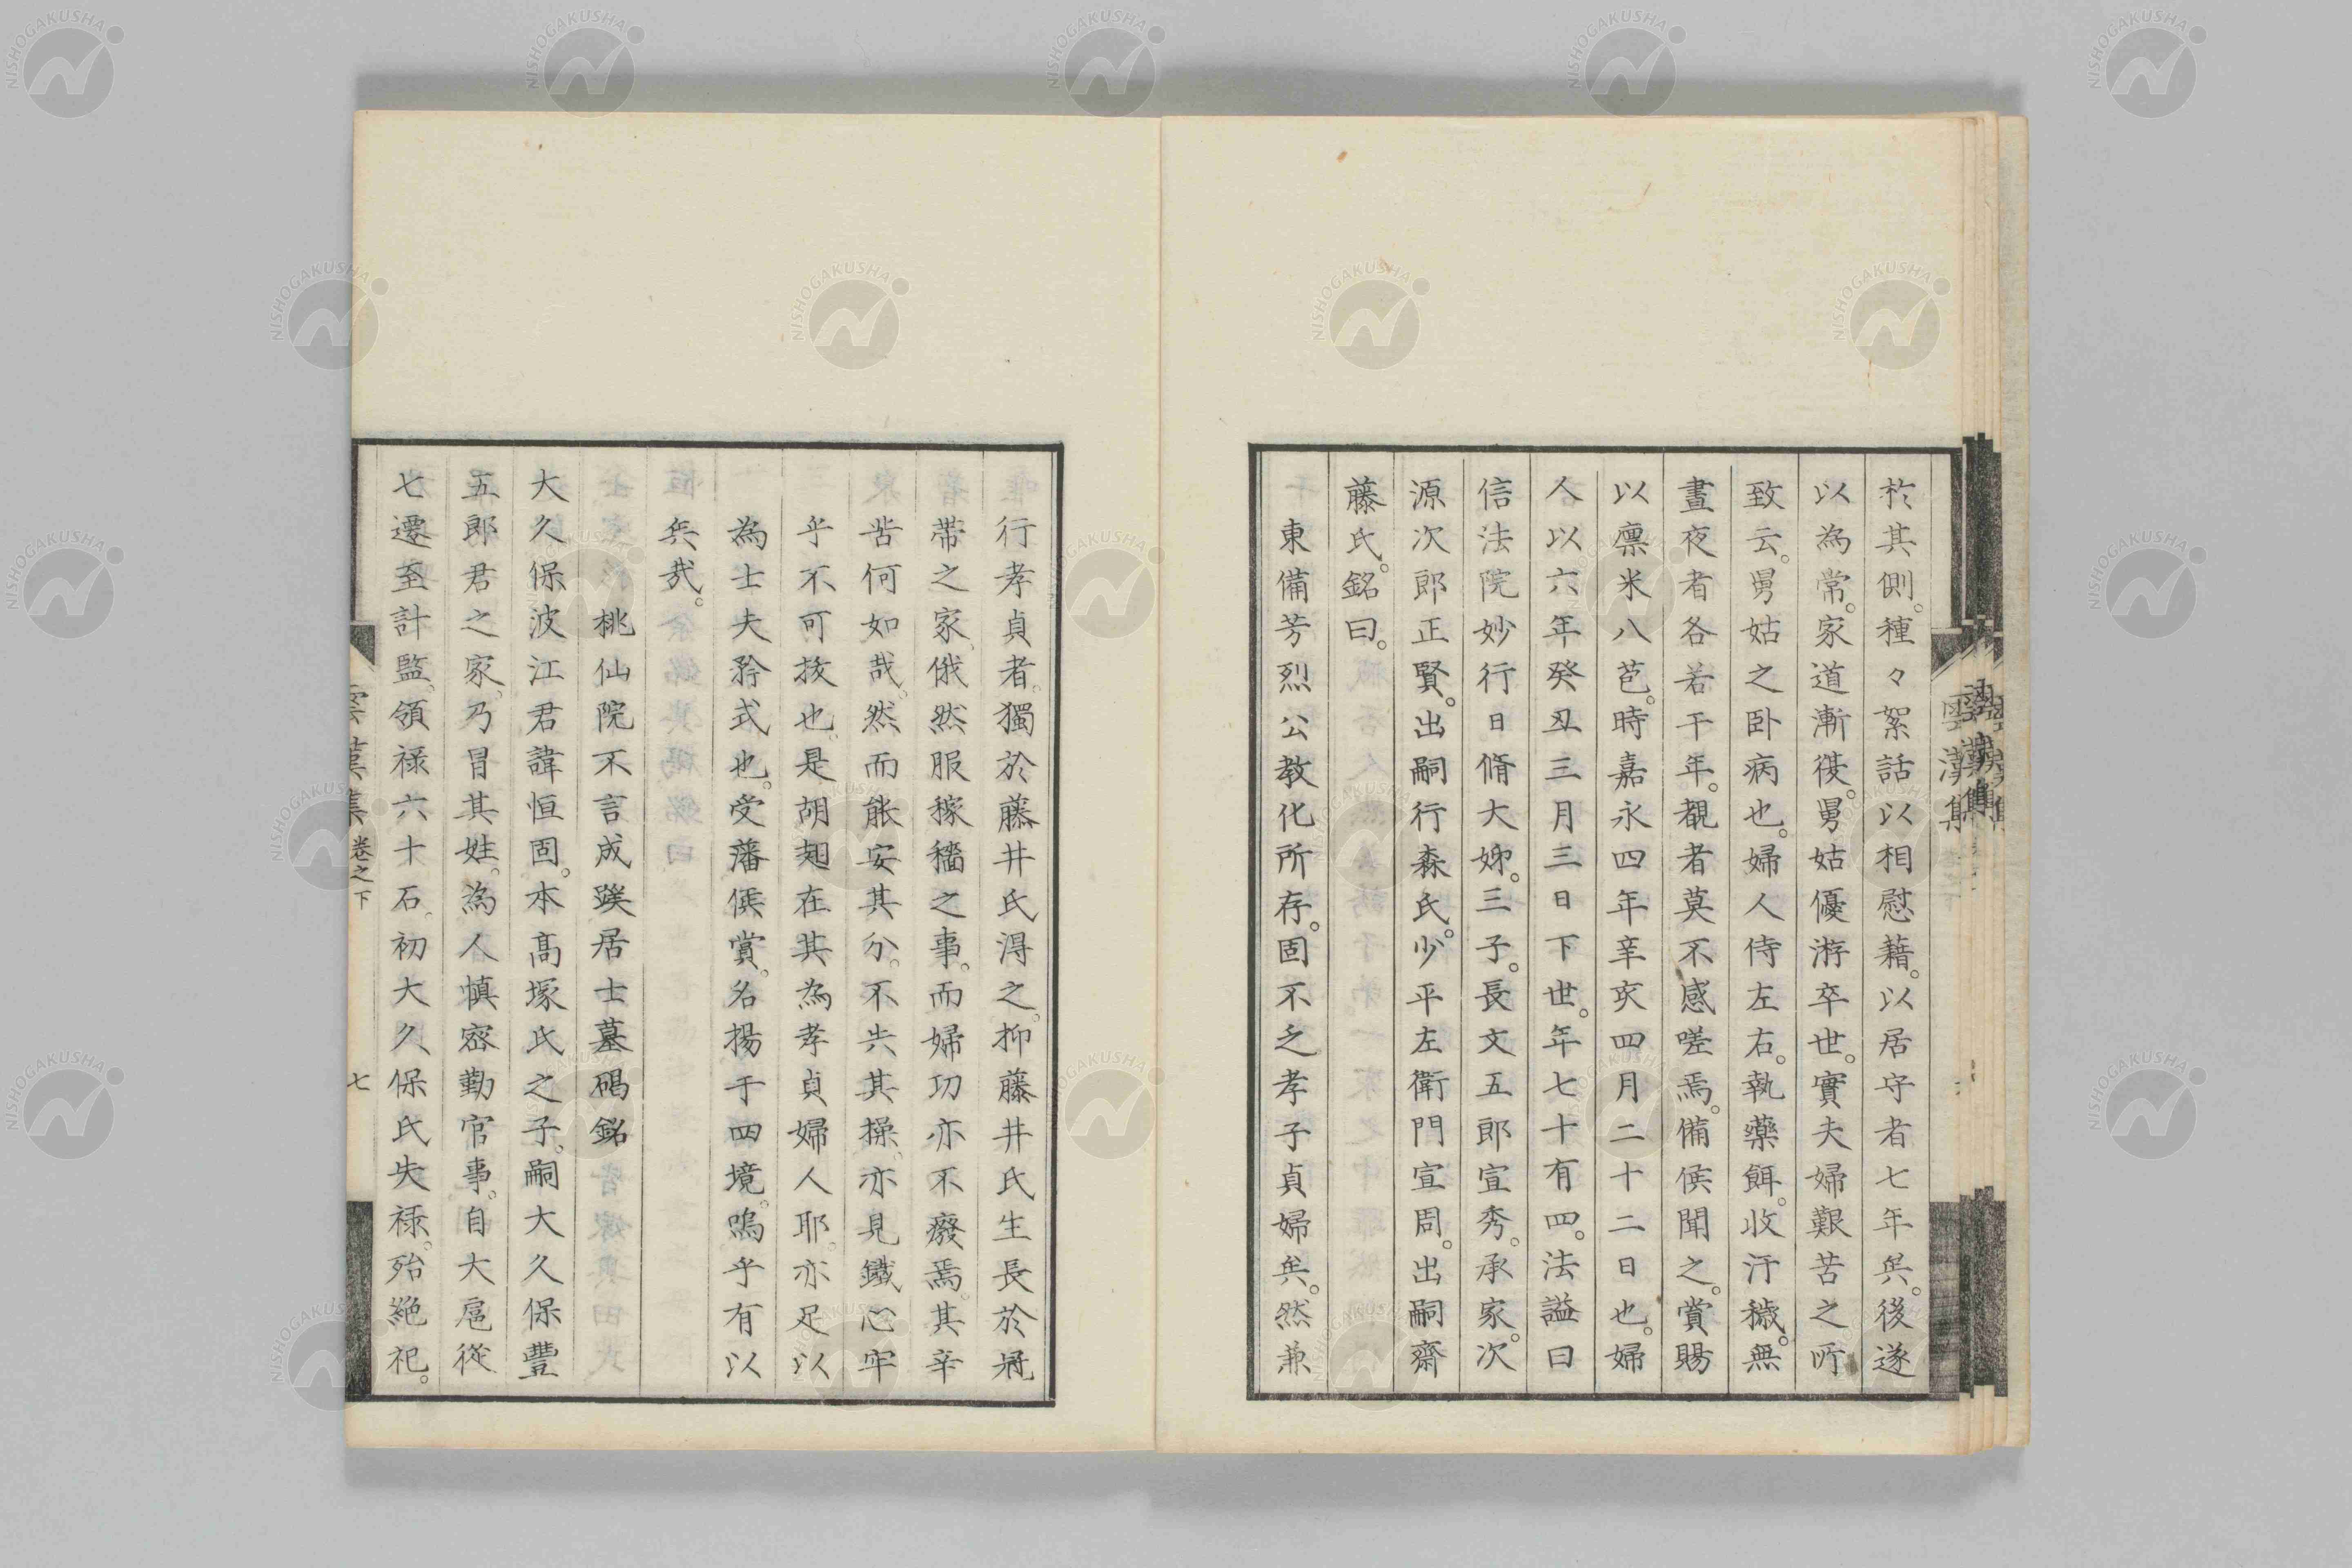 於其側。種々絮話。以相慰藉。以居守者七年矣。後遂
以為常。家道漸復。舅姑優游卒世。實夫婦艱苦之所
致云。舅姑之卧病也。婦人侍左右。執藥餌。收汙穢。無
晝夜者各若干年。覩者莫不感嗟焉。備侯聞之。賞賜
以廩米八苞。時嘉永四年辛亥四月二十二日也。婦
人以六年癸丑三月三日下世。年七十有四。法謚曰
信法院妙行日脩大姊。三子。長文五郎宣秀。承家。次
源次郎正賢。出嗣行森氏。少平左衛門宣周。出嗣齋
藤氏。銘曰。
東備芳烈公教化所存。固不乏孝子貞婦矣。然兼
行孝貞者。獨於藤井氏得之。抑藤井氏生長於冠
帶之家。俄然服稼穡之事。而婦功亦不廢焉。其辛
苦何如哉。然而能安其分。不失其操。亦見鐵心牢
乎不可拔也。是胡翅在其為孝貞婦人耶。亦足以
為士夫矜式也。受藩侯賞。名揚于四境。嗚乎有以
矣哉。
桃仙院不言成蹊居士墓碣銘
大久保波江君諱恒固。本髙塚氏之子。嗣大久保豐
五郎君之家。乃冒其姓。為人慎密勤官事。自大扈從
七遷至計監。領祿六十石。初大久保氏失祿。殆絶祀。
雲漢集 卷之下 七
NISHOGAKUSHA